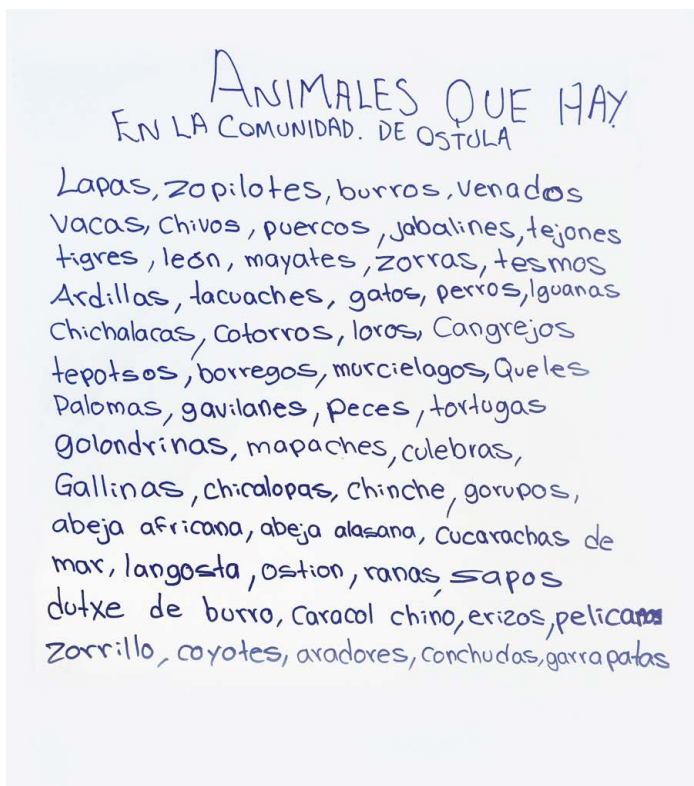 ANIMALES QUE HAY
EN LA COMUNIDAD. DE OSTULA
Lapas, zopilotes, burros, venados
vacas, chivos, puercos, jabalines, tejones
tigres, león, mayates, zorras, tesmos
Ardillas, tacuaches, gatos, perros, Iguanas
Chichalacas, cotorros, loros, Cangrejos
tepotsos, borregos, murcielagos, Queles
Palomas, gavilanes, peces, tortugas
golondrinas, mapaches, culebras,
Gallinas, chicalopas, chinche, gorupos,
abeja africana, abeja alasana, cucarachas de
mar, langosta, ostion, ranas, sapos
dutxe de burro, caracol chino, erizos, pelicanos
zorrillo, coyotes, aradores, conchudas, garrapatas